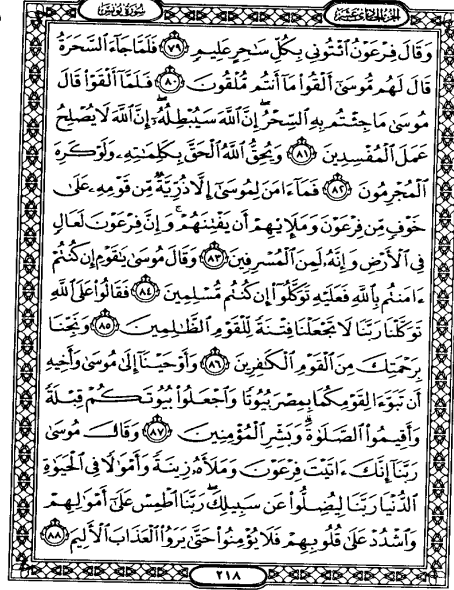 سورة يونس
الجزء الحادي عشر
وَقَالَ فِرْعَوْنُ ٱئْتُونِي بِكُلِّ سَٰحِرٍ عَلِيمٍ ٧٩ فَلَمَّا جَآءَ ٱلسَّحَرَةُ
قَالَ لَهُم مُّوسَىٰٓ أَلْقُوا۟ مَآ أَنتُم مُّلْقُونَ ٨٠ فَلَمَّآ أَلْقَوْا۟ قَالَ
مُوسَىٰ مَا جِئْتُم بِهِ ٱلسِّحْرُ ۖ إِنَّ ٱللَّهَ سَيُبْطِلُهُۥٓ ۖ إِنَّ ٱللَّهَ لَا يُصْلِحُ
عَمَلَ ٱلْمُفْسِدِينَ ٨١ وَيُحِقُّ ٱللَّهُ ٱلْحَقَّ بِكَلِمَٰتِهِۦ وَلَوْ كَرِهَ
ٱلْمُجْرِمُونَ ٨٢ فَمَآ ءَامَنَ لِمُوسَىٰٓ إِلَّا ذُرِّيَّةٌ مِّن قَوْمِهِۦ عَلَىٰ
خَوْفٍ مِّن فِرْعَوْنَ وَمَلَإِي۟هِمْ أَن يَفْتِنَهُمْ ۚ وَإِنَّ فِرْعَوْنَ لَعَالٍ
فِي ٱلْأَرْضِ وَإِنَّهُۥ لَمِنَ ٱلْمُسْرِفِينَ ٨٣ وَقَالَ مُوسَىٰ يَٰقَوْمِ إِن كُنتُمْ
ءَامَنتُم بِٱللَّهِ فَعَلَيْهِ تَوَكَّلُوٓا۟ إِن كُنتُم مُّسْلِمِينَ ٨٤ فَقَالُوا۟ عَلَى ٱللَّهِ
تَوَكَّلْنَا رَبَّنَا لَا تَجْعَلْنَا فِتْنَةً لِّلْقَوْمِ ٱلظَّٰلِمِينَ ٨٥ وَنَجِّنَا
بِرَحْمَتِكَ مِنَ ٱلْقَوْمِ ٱلْكَٰفِرِينَ ٨٦ وَأَوْحَيْنَآ إِلَىٰ مُوسَىٰ وَأَخِيهِ
أَن تَبَوَّءَا لِقَوْمِكُمَا بِمِصْرَ بُيُوتًا وَٱجْعَلُوا۟ بُيُوتَكُمْ قِبْلَةً
وَأَقِيمُوا۟ ٱلصَّلَوٰةَ ۗ وَبَشِّرِ ٱلْمُؤْمِنِينَ ٨٧ وَقَالَ مُوسَىٰ
رَبَّنَآ إِنَّكَ ءَاتَيْتَ فِرْعَوْنَ وَمَلَأَهُۥ زِينَةً وَأَمْوَٰلًا فِي ٱلْحَيَوٰةِ
ٱلدُّنْيَا رَبَّنَا لِيُضِلُّوا۟ عَن سَبِيلِكَ ۖ رَبَّنَا ٱطْمِسْ عَلَىٰٓ أَمْوَٰلِهِمْ
وَٱشْدُدْ عَلَىٰ قُلُوبِهِمْ فَلَا يُؤْمِنُوا۟ حَتَّىٰ يَرَوُا۟ ٱلْعَذَابَ ٱلْأَلِيمَ ٨٨
٢١٨